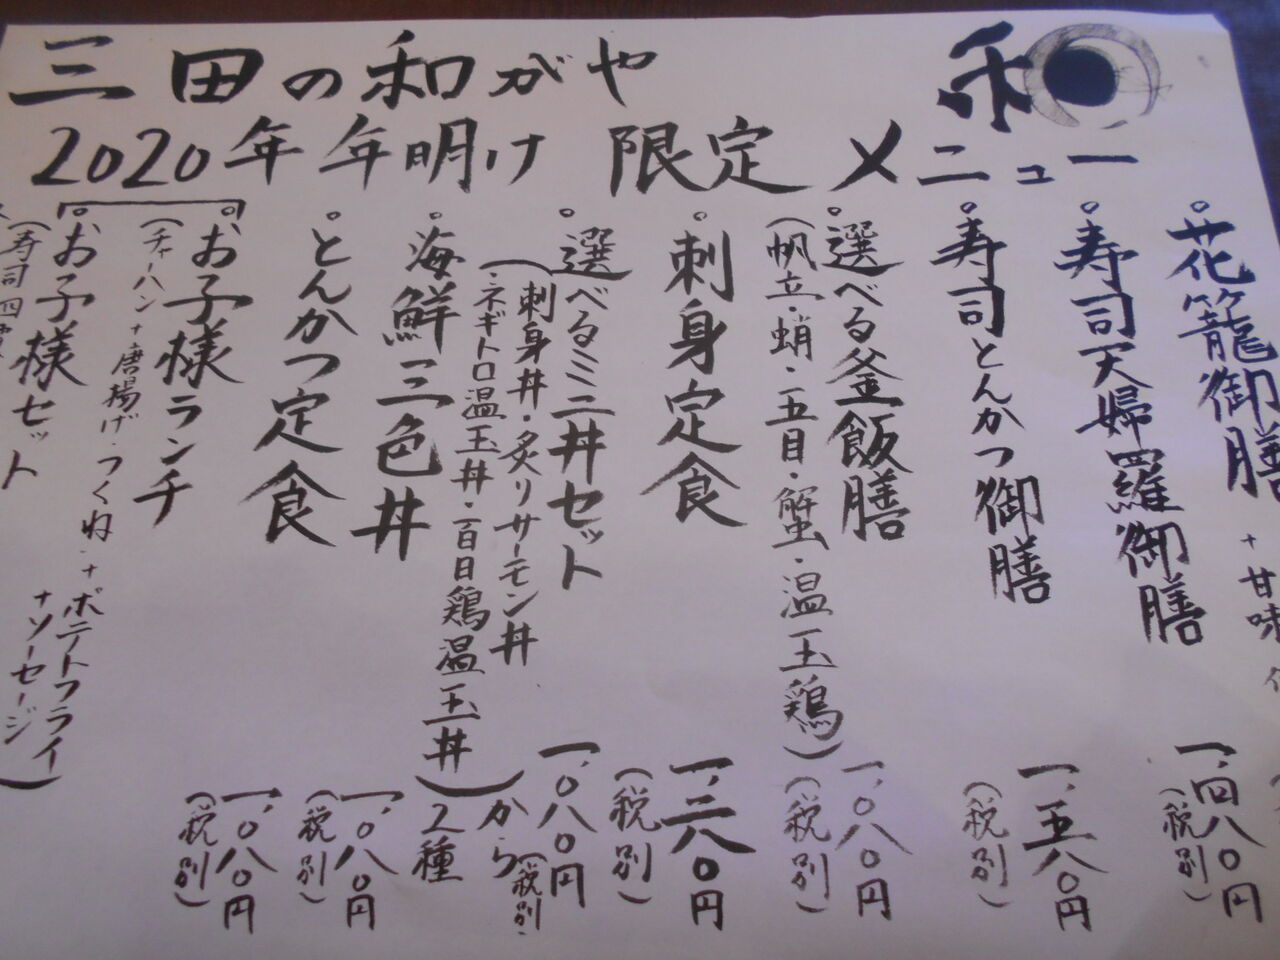 三田の和がや
和
2020年 年明け 限定メニュー
。花籠御膳 +甘味
一、四八〇円
(税別)
。寿司天婦羅御膳
。寿司とんかつ御膳
一、五八〇円
(税別)
。選べる釜飯膳
(帆立・蛸・五目・蟹・温玉鶏)
一、〇八〇円
(税別)
。刺身定食
一、三八〇円
(税別)
。選べるミニ丼セット
(刺身丼・炙りサーモン丼
・ネギトロ温玉丼・百日鶏温玉丼)から
2種
一、〇八〇円
(税別)
。海鮮三色丼
。とんかつ定食
一、〇八〇円
(税別)
。お子様ランチ
(チャーハン+唐揚げ・つくね・+ポテトフライ
+ソーセージ)
一、〇八〇円
(税別)
。お子様セット
(寿司四貫